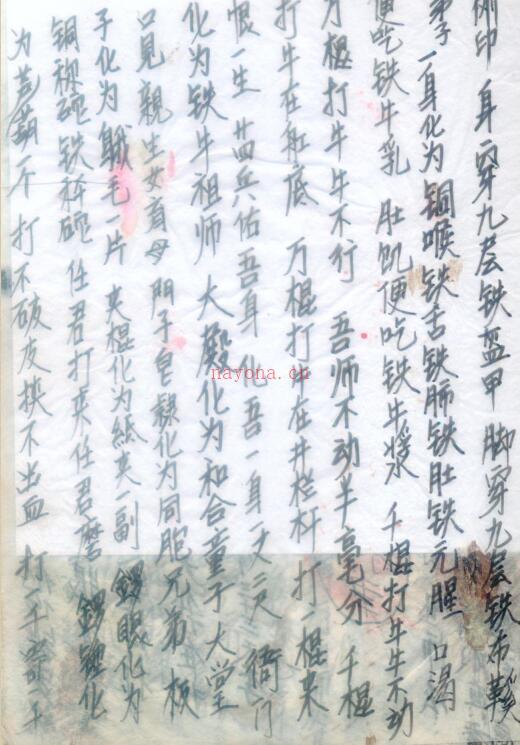 身穿九层铁盔甲 脚穿九层铁布鞋
弟子一身化为铜喉铁舌铁肺铁肚铁元腥 口渴
便吃铁牛乳 肚饥便吃铁牛浆 千棍打牛牛不动
万棍打牛牛不行 吾师不动半毫分 千棍
打牛在缸底 万棍打牛在井栏杆 打一棍来
恨一生 兵佑吾身 化吾一身 衙门
化为铁牛祖师 大殿化为和合童子 大堂
口见亲生父育母 門子皂隸化为同胞兄弟 板
子化为鵝毛一片 夹棍化为紙夹一副 鑼眼化为
铜 碗铁 碗 任君打来任君磨 鑼 化
为葫一个 打不破皮挟不出血 打一千
nayona.cn